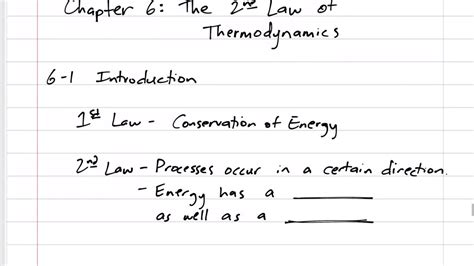 Chapter 6: The 2nd Law of
Thermodynamics
6-1 Introduction
1st Law - Conservation of Energy
2nd Law - Processes occur in a certain direction.
- Energy has a ________
as well as a ________